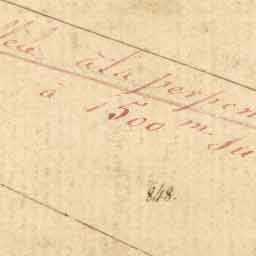 à la perpen
à 1500 m. Su
848.